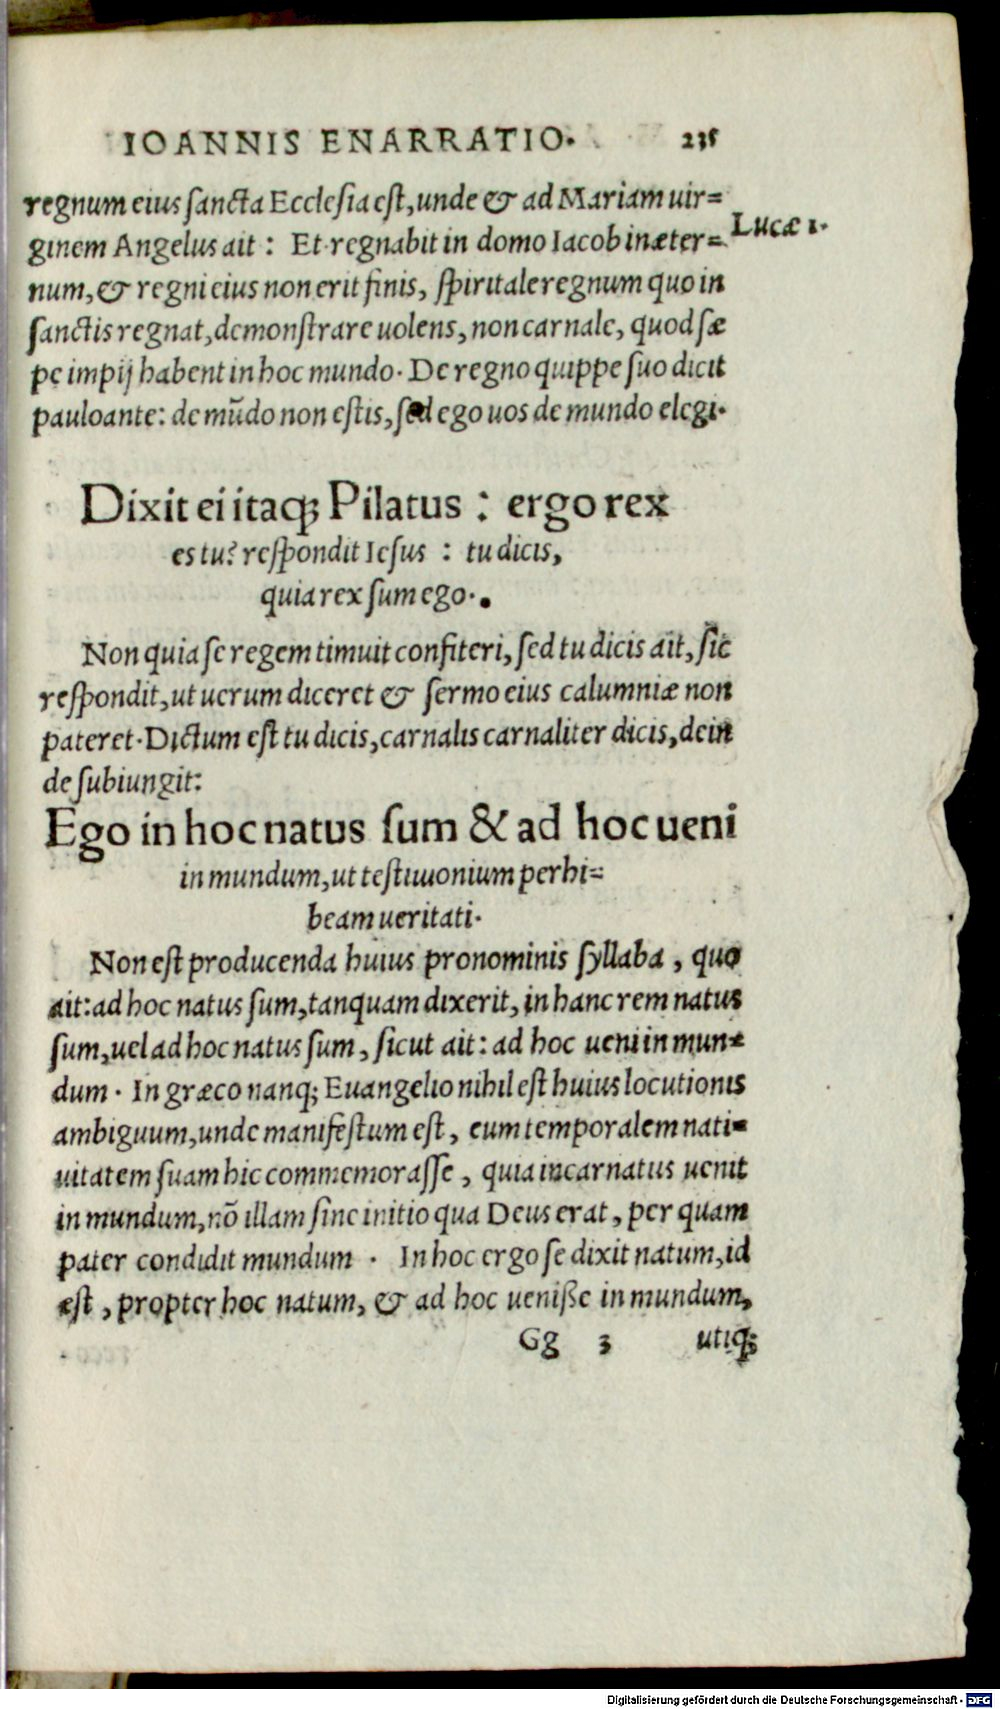 IOANNIS ENARRATIO. 235
regnum eius sancta Ecclesia est, unde & ad Mariam uir=
ginem Angelus ait : Et regnabit in domo Iacob in æter=
Lucæ 1.
num, & regni eius non erit finis, spiritale regnum quo in
sanctis regnat, demonstrare uolens, non carnale, quod sæ
pe impij habent in hoc mundo. De regno quippe suo dicit
pauloante: de mūdo non estis, sed ego uos de mundo elegi.
Dixit ei itaq; Pilatus : ergo rex
es tu? respondit Iesus : tu dicis,
quia rex sum ego.
Non quia se regem timuit confiteri, sed tu dicis ait, sic
respondit, ut uerum diceret & sermo eius calumniæ non
pateret. Dictum est tu dicis, carnalis carnaliter dicis, dein
de subiungit:
Ego in hoc natus sum & ad hoc ueni
in mundum, ut testimonium perhi=
beam ueritati.
Non est producenda huius pronominis syllaba, quo
ait: ad hoc natus sum, tanquam dixerit, in hanc rem natus
sum, uel ad hoc natus sum, sicut ait: ad hoc ueni in mun=
dum. In græco nanq; Euangelio nihil est huius locutionis
ambiguum, unde manifestum est, eum temporalem nati=
uitatem suam hic commemorasse, quia incarnatus uenit
in mundum, nō illam sine initio qua Deus erat, per quam
pater condidit mundum. In hoc ergo se dixit natum, id
est, propter hoc natum, & ad hoc uenisse in mundum,
Gg 3 utiq;
Digitalisierung gefördert durch die Deutsche Forschungsgemeinschaft - DFG